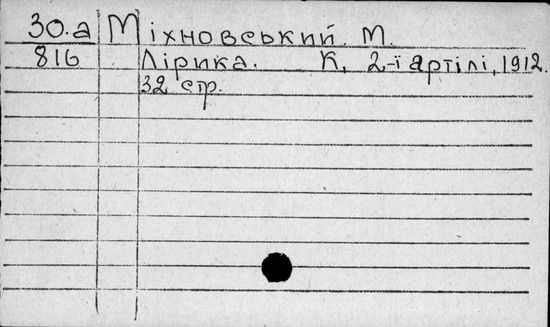 30.а Міхновський М.
816 Лірика. К, 2-ї артілі, 1912.
32 стр.